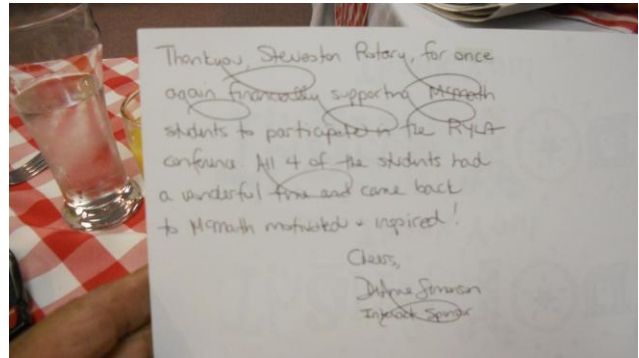 Thankyou, Steveston Rotary, for once
again financially supporting McMath
students to participate in the RYLA
conference. All 4 of the students had
a wonderful time and came back
to McMath motivated + inspired!
Cheers,
DiAnne Simonson
Interact Sponsor